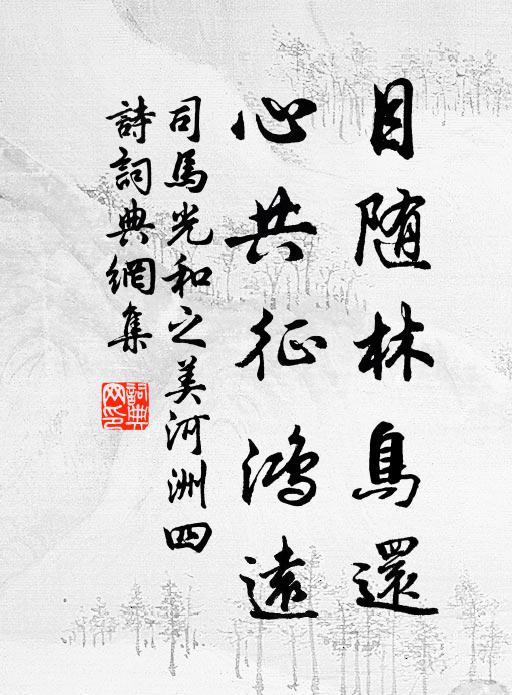 目随林鳥還
心共征鴻遠
司馬光和之美河洲四
詩詞典網集
詞典網印